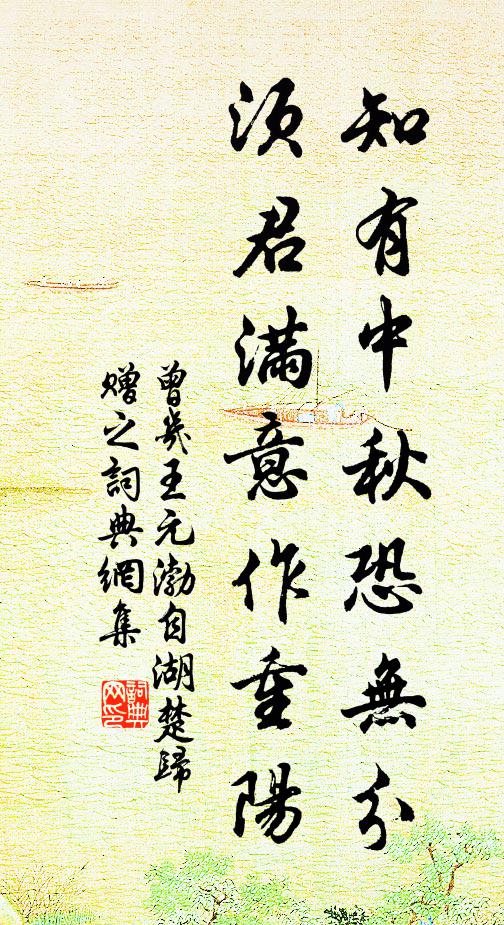 知有中秋恐無分
須君滿意作重陽
曾幾王元渤自湖楚歸
贈之詞典網集
詞典
网印